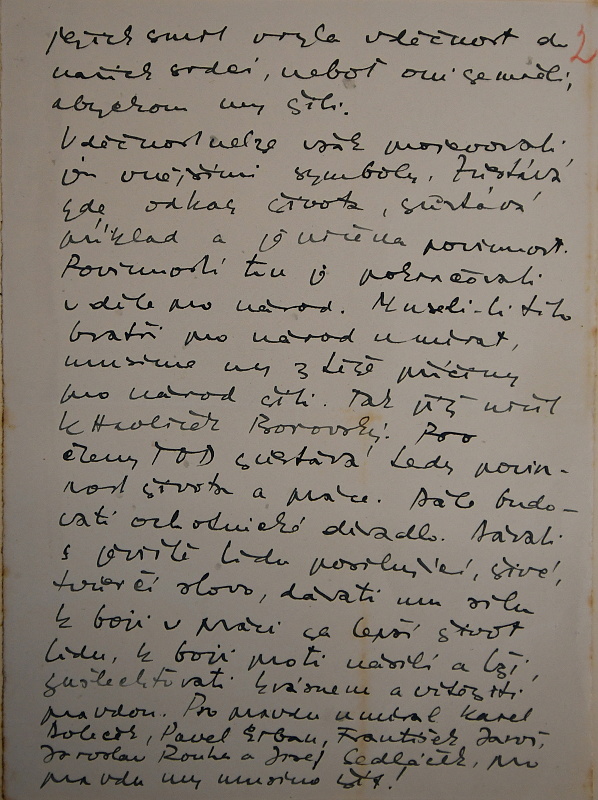 jejich smrt vryla vděčnost do 2
našich srdcí, neboť oni zemřeli,
abychom my žili.
Vděčnost nelze však projevovati
jen vnějšími symboly. Zůstává
zde odkaz života, zůstává
příklad a je určena povinnost.
Povinností tou je pokračovati
v díle pro národ. Museli-li tito
bratři pro národ umírat,
musíme my z téže příčiny
pro národ žíti. Tak již učil
K Havlíček Borovský. Pro
členy TOD zůstává tedy povin-
nost života a práce. Dále budo-
vati ochotnické divadlo. Dávati
s jeviště lidu posilující, živé,
tvůrčí slovo, dávati mu sílu
k boji v práci za lepší život
lidu, k boji proti násilí a lži,
zušlechťovati krásnem a vítězití
pravdou. Pro pravdu umíral Karel
Boleček, Pavel Erban, František Jaroš,
Jaroslav Rouha a Josef Sedláček, pro
pravdu my musíme žít!